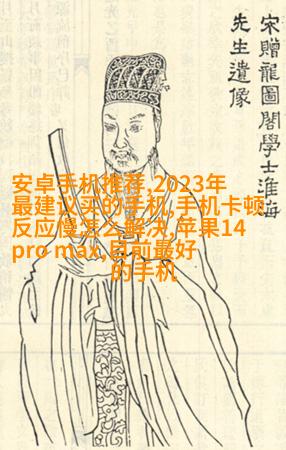 宋贈龍圖閣學士淮海
先生遺像
安卓手机推荐,2023年
最建议买的手机,手机卡顿
反应慢怎么解决,苹果14
pro max,目前最好
的手机